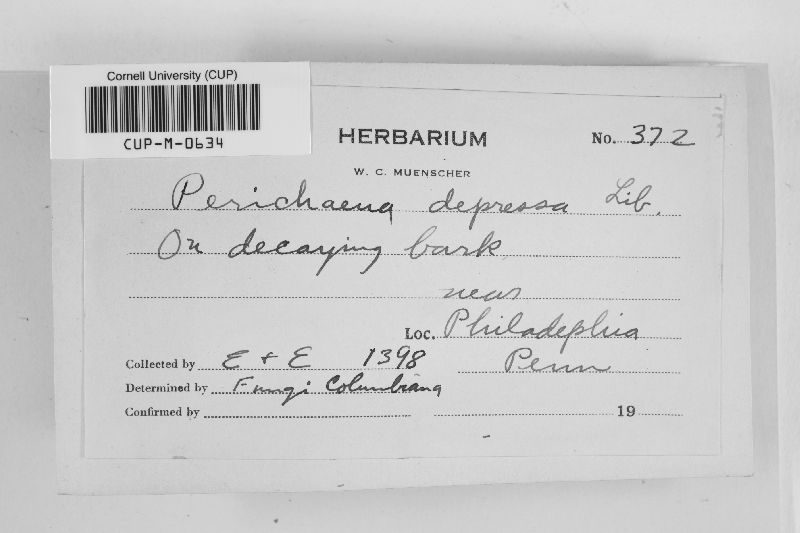 Cornell University (CUP)
CUP-M-0634
HERBARIUM No. 372
W. C. MUENSCHER
Perichaena depressa Lib.
On decaying bark
near
Loc. Philadephia
Collected by E + E 1398 Penn
Determined by Fungi Columbiana
Confirmed by 19